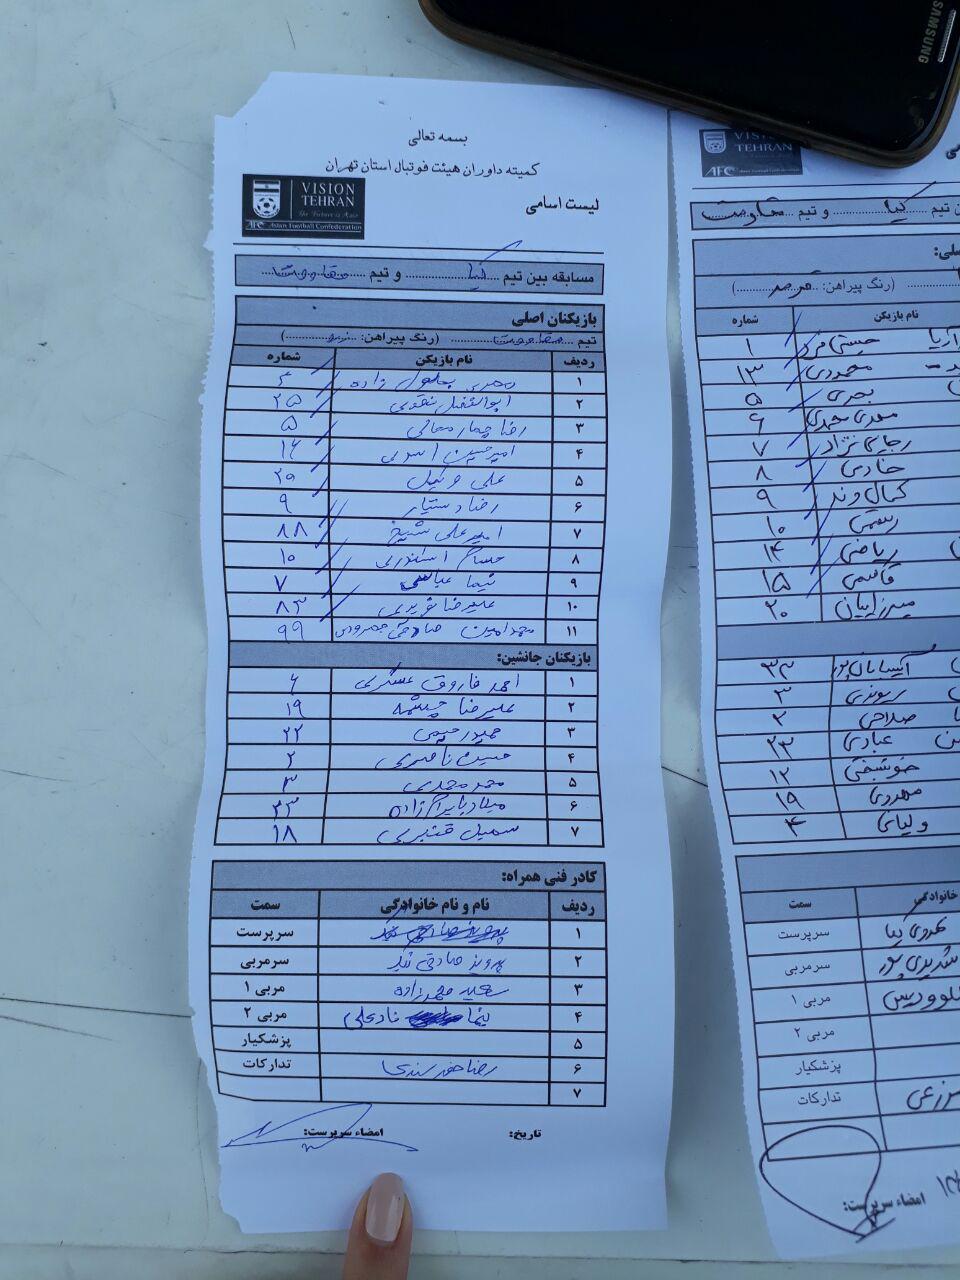 SAMSUNG
بسمه تعالی
کمیته داوران هیئت فوتبال استان تهران
VISION
TEHRAN
The Future is Asia
AFC Asian Football Confederation
لیست اسامی
مسابقه بین تیم کیا و تیم مقاومت
بازیکنان اصلی
تیم مقاومت (رنگ پیراهن: زرد)
ردیف نام بازیکن شماره
۱ مهدی بهلول زاده ۴
۲ ابوالفضل نقوی ۲۵
۳ رضا ۵
۴ امیرحسین ۱۶
۵ علی وکیل ۲۰
۶ رضا دستیار ۹
۷ امیرعلی شیخ ۸۸
۸ حسام ۱۰
۹ نیما عباسی ۷
۱۰ علیرضا عزیزی ۸۳
۱۱ محمدامین صادقی ۹۹
بازیکنان جانشین:
۱ احمد فاروق عسگری ۶
۲ علیرضا چشمه ۱۹
۳ حیدر رحیمی ۲۲
۴ حسین ناصری ۲
۵ محمد محمدی ۳
۶ میلاد بایرام زاده ۳۳
۷ سهیل قنبری ۱۸
کادر فنی همراه:
ردیف نام و نام خانوادگی سمت
۱ سرپرست
۲ پرویز صادقی سرمربی
۳ سعید محمدزاده مربی ۱
۴ نیما نادعلی مربی ۲
۵ پزشکیار
۶ رضا تدارکات
۷
تاریخ: امضاء سرپرست:
VISION
TEHRAN
AFC Asian Football Confederation
تیم کیا و تیم مقاومت
(رنگ پیراهن: قرمز)
نام بازیکن شماره
۱
محمودی ۱۳
۵
مهدی محمدی ۶
رجایی نژاد ۷
خادمی ۸
کمال وند ۹
رستمی ۱۰
ریاضی ۱۴
قاسمی ۱۵
میرزاییان ۲۰
آسیابان پور ۳۲
ریوندی ۳
صلاحی ۲
عبادی ۲۳
خوشبختی ۱۲
مهدوی ۱۹
ولیانی ۴
خانوادگی سمت
سرپرست
سرمربی
مربی ۱
مربی ۲
پزشکیار
مزرعی تدارکات
امضاء سرپرست: